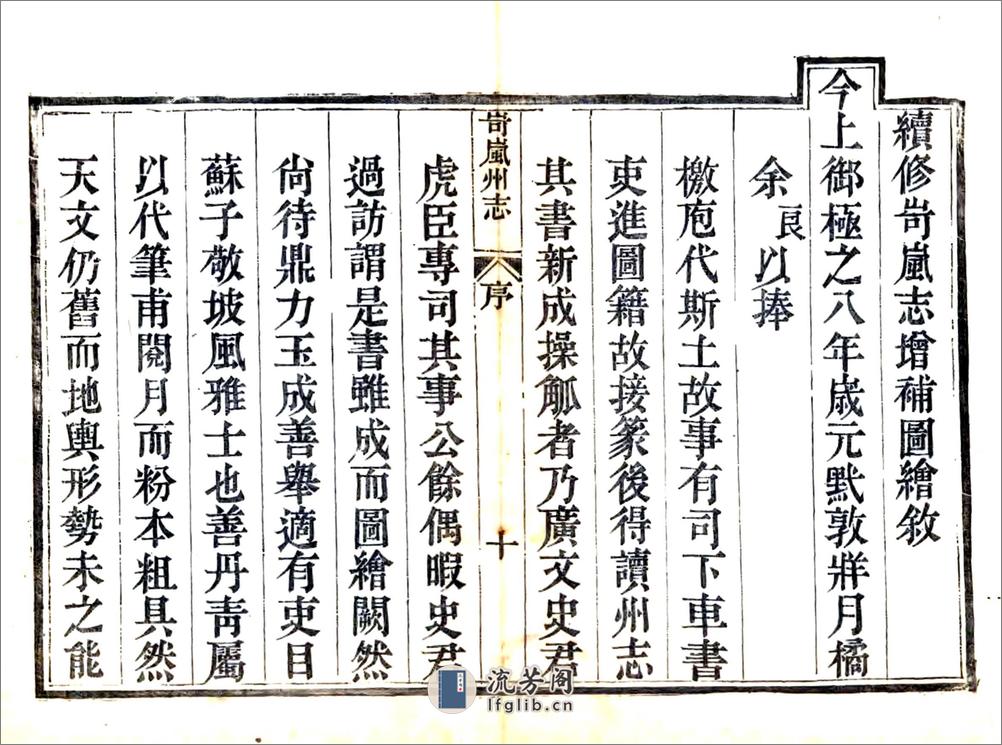 續修岢嵐志增補圖繪敘
今上御極之八年歲元黓敦牂月橘
余良以捧
檄庖代斯土故事有司下車書
吏進圖籍故接篆後得讀州志
其書新成操觚者乃廣文史君
岢嵐州志 序 十
虎臣專司其事公餘偶暇史君
過訪謂是書雖成而圖繪闕然
尙待鼎力玉成善舉適有吏目
蘇子敬坡風雅士也善丹靑屬
以代筆甫閱月而粉本粗具然
天文仍舊而地輿形勢未之能
流芳阁
lfglib.cn